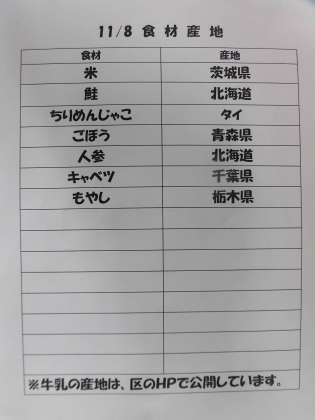 11/8 食材産地
食材 産地
米 茨城県
鮭 北海道
ちりめんじゃこ タイ
ごぼう 青森県
人参 北海道
キャベツ 千葉県
もやし 栃木県
※牛乳の産地は、区のHPで公開しています。